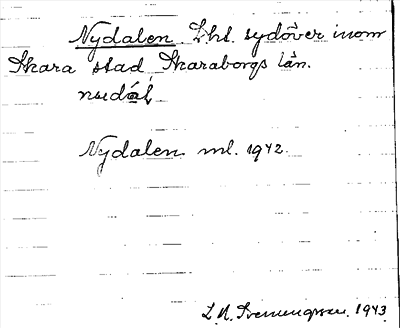 Nydalen. Lht. sydöver inom
Skara stad, Skaraborgs län.
Nydalen ml. 1942.
1943